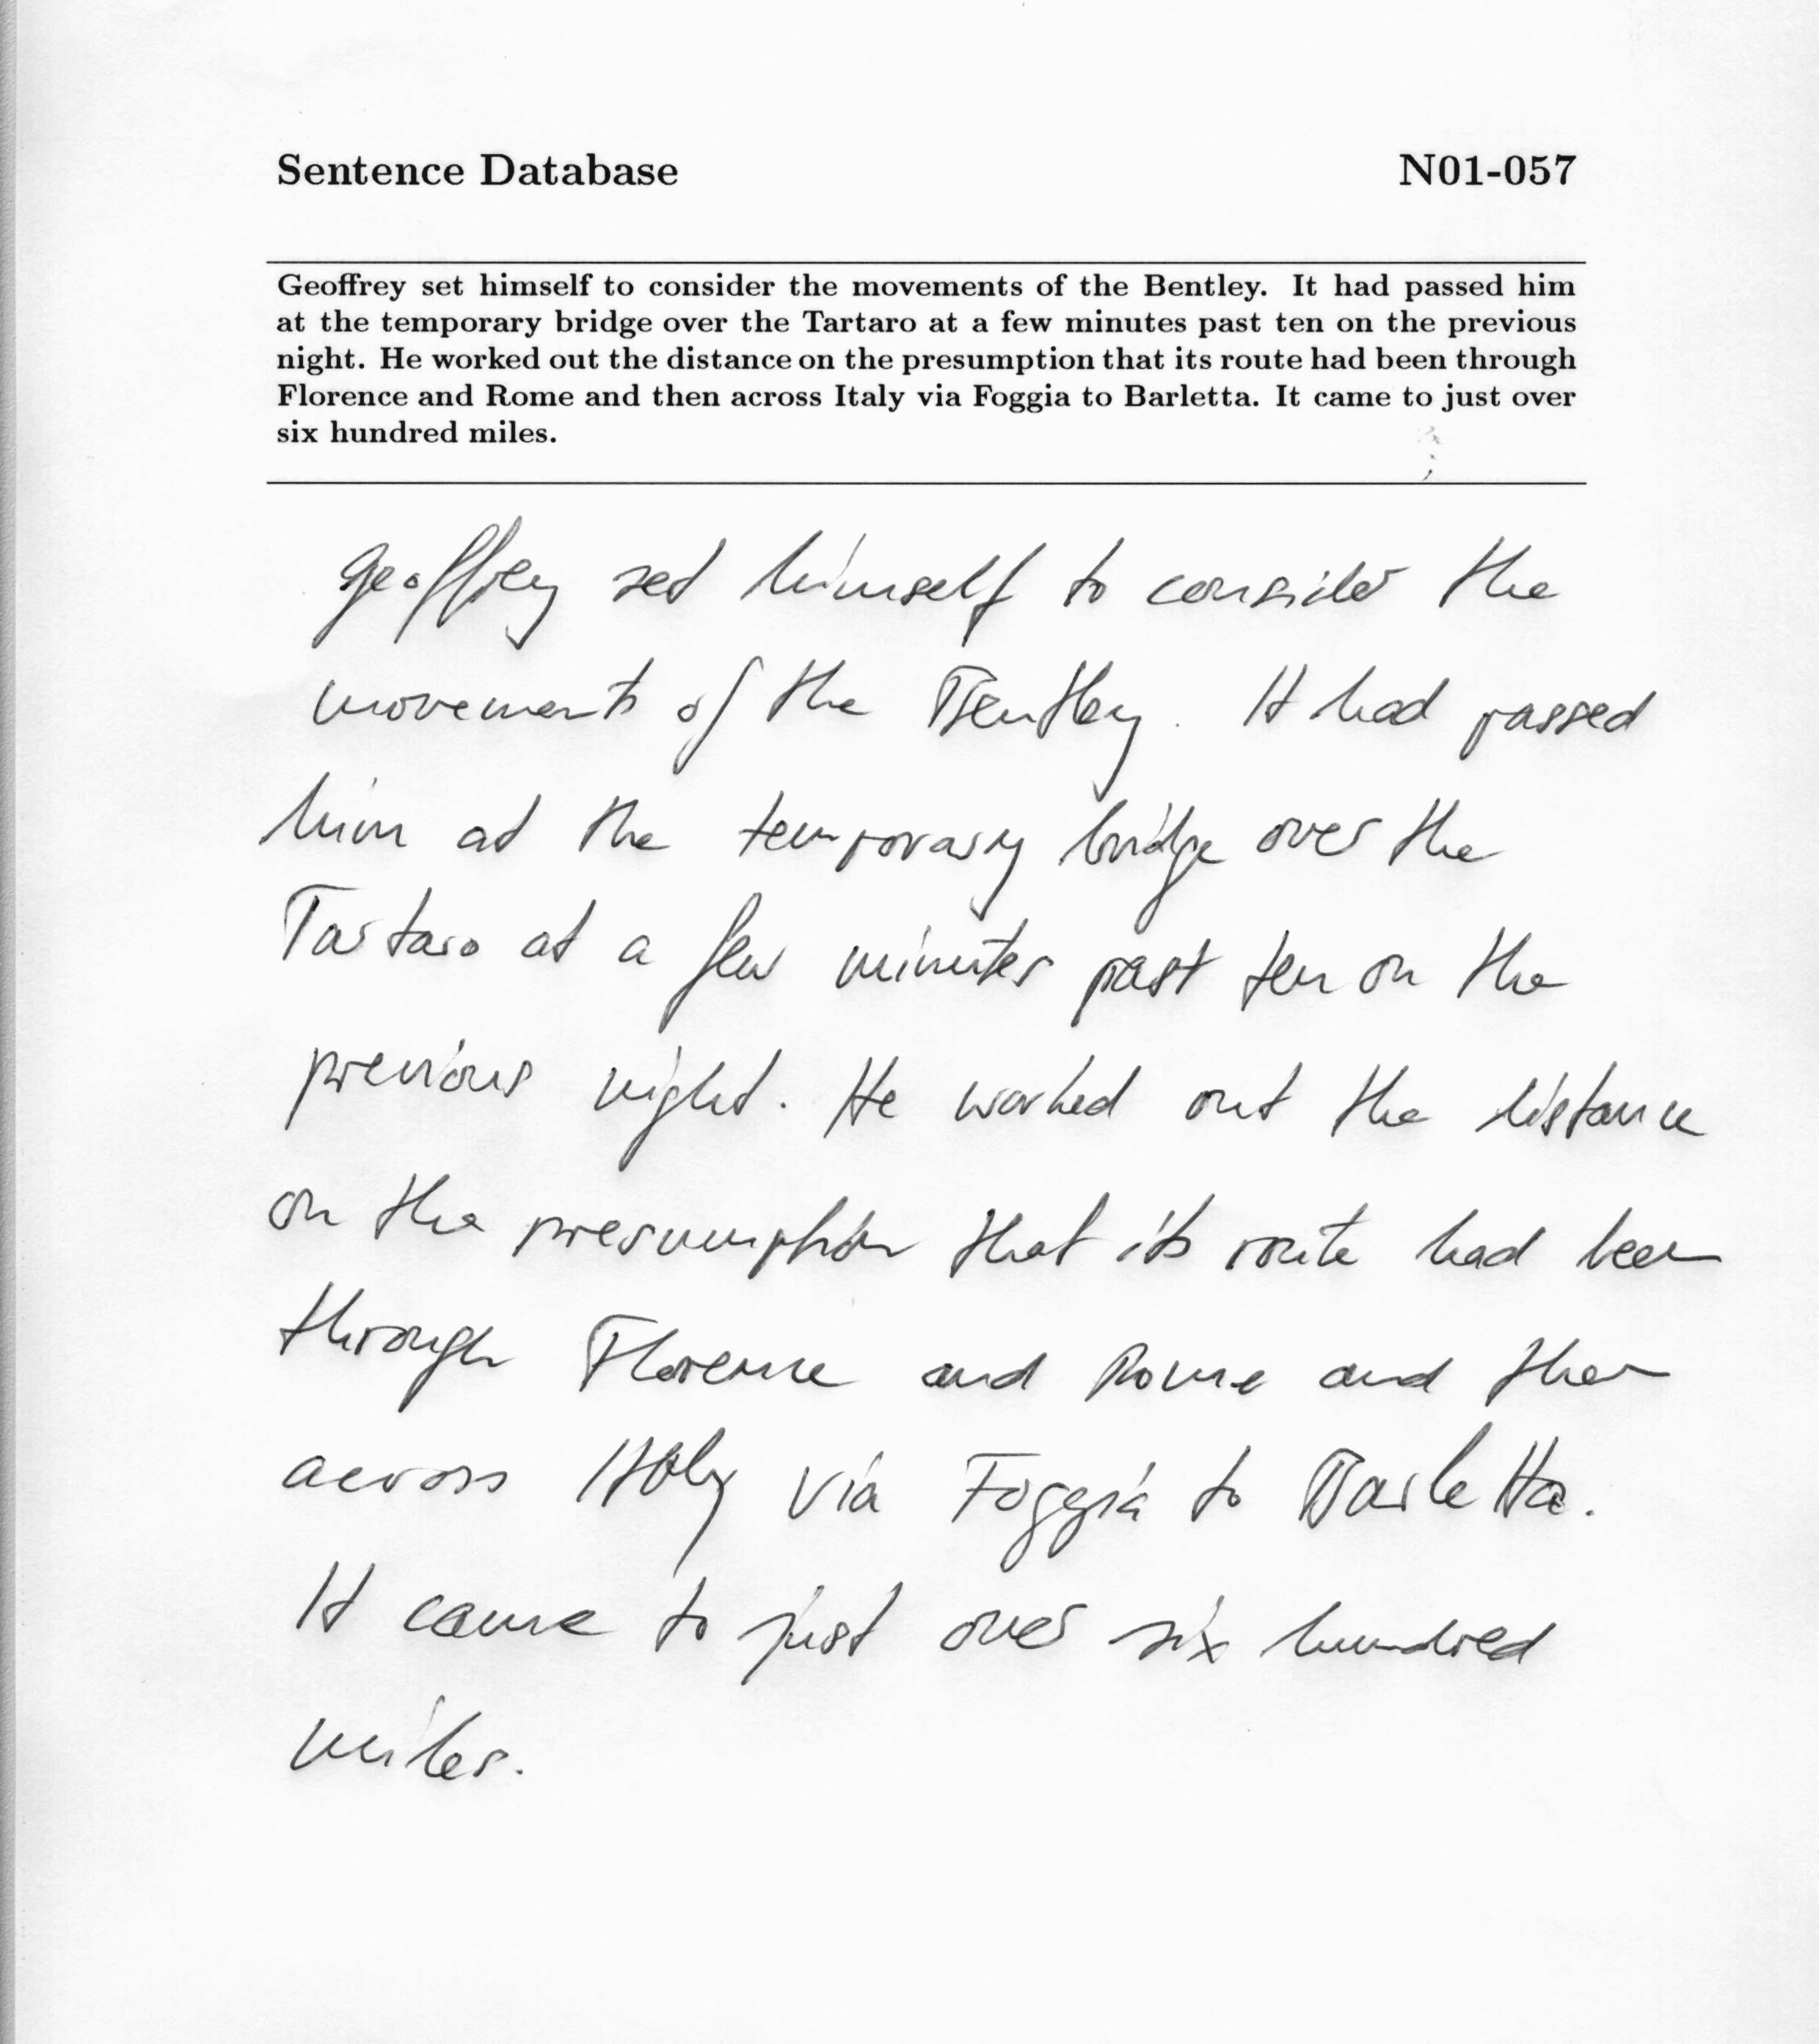 Sentence Database N01-057
Geoffrey set himself to consider the movements of the Bentley. It had passed him
at the temporary bridge over the Tartaro at a few minutes past ten on the previous
night. He worked out the distance on the presumption that its route had been through
Florence and Rome and then across Italy via Foggia to Barletta. It came to just over
six hundred miles.
Geoffrey set himself to consider the
movements of the Bentley. It had passed
him at the temporary bridge over the
Tartaro at a few minutes past ten on the
previous night. He worked out the distance
on the presumption that its route had been
through Florence and Rome and then
across Italy via Foggia to Barletta.
It came to just over six hundred
miles.